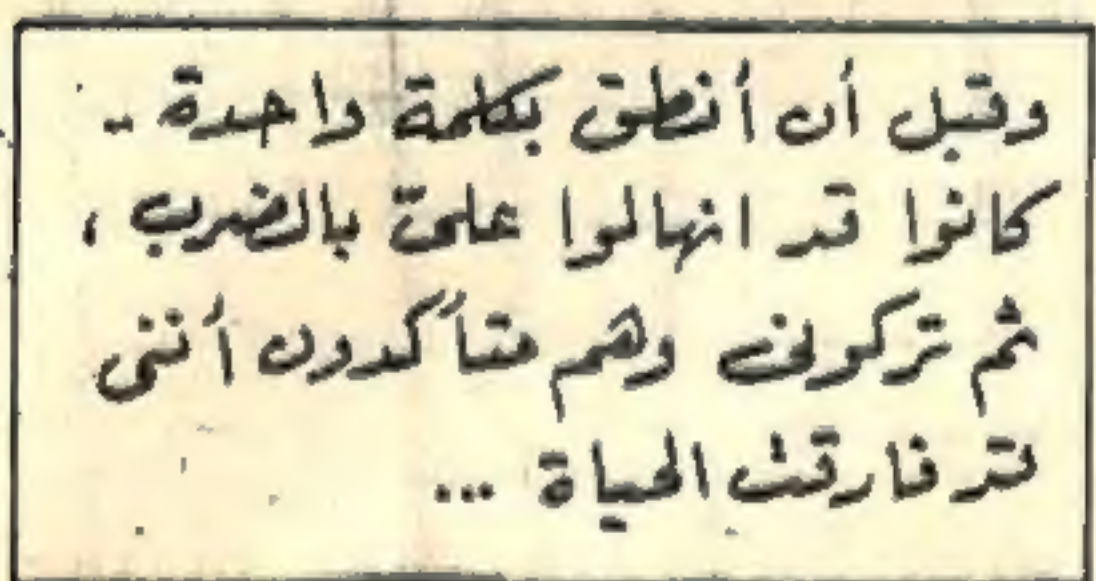 وقبل أن أنطق بكلمة واحدة ..
كانوا قد انهالوا علىّ بالضرب ،
ثم تركونى وهم متأكدون أننى
قد فارقت الحياة ...